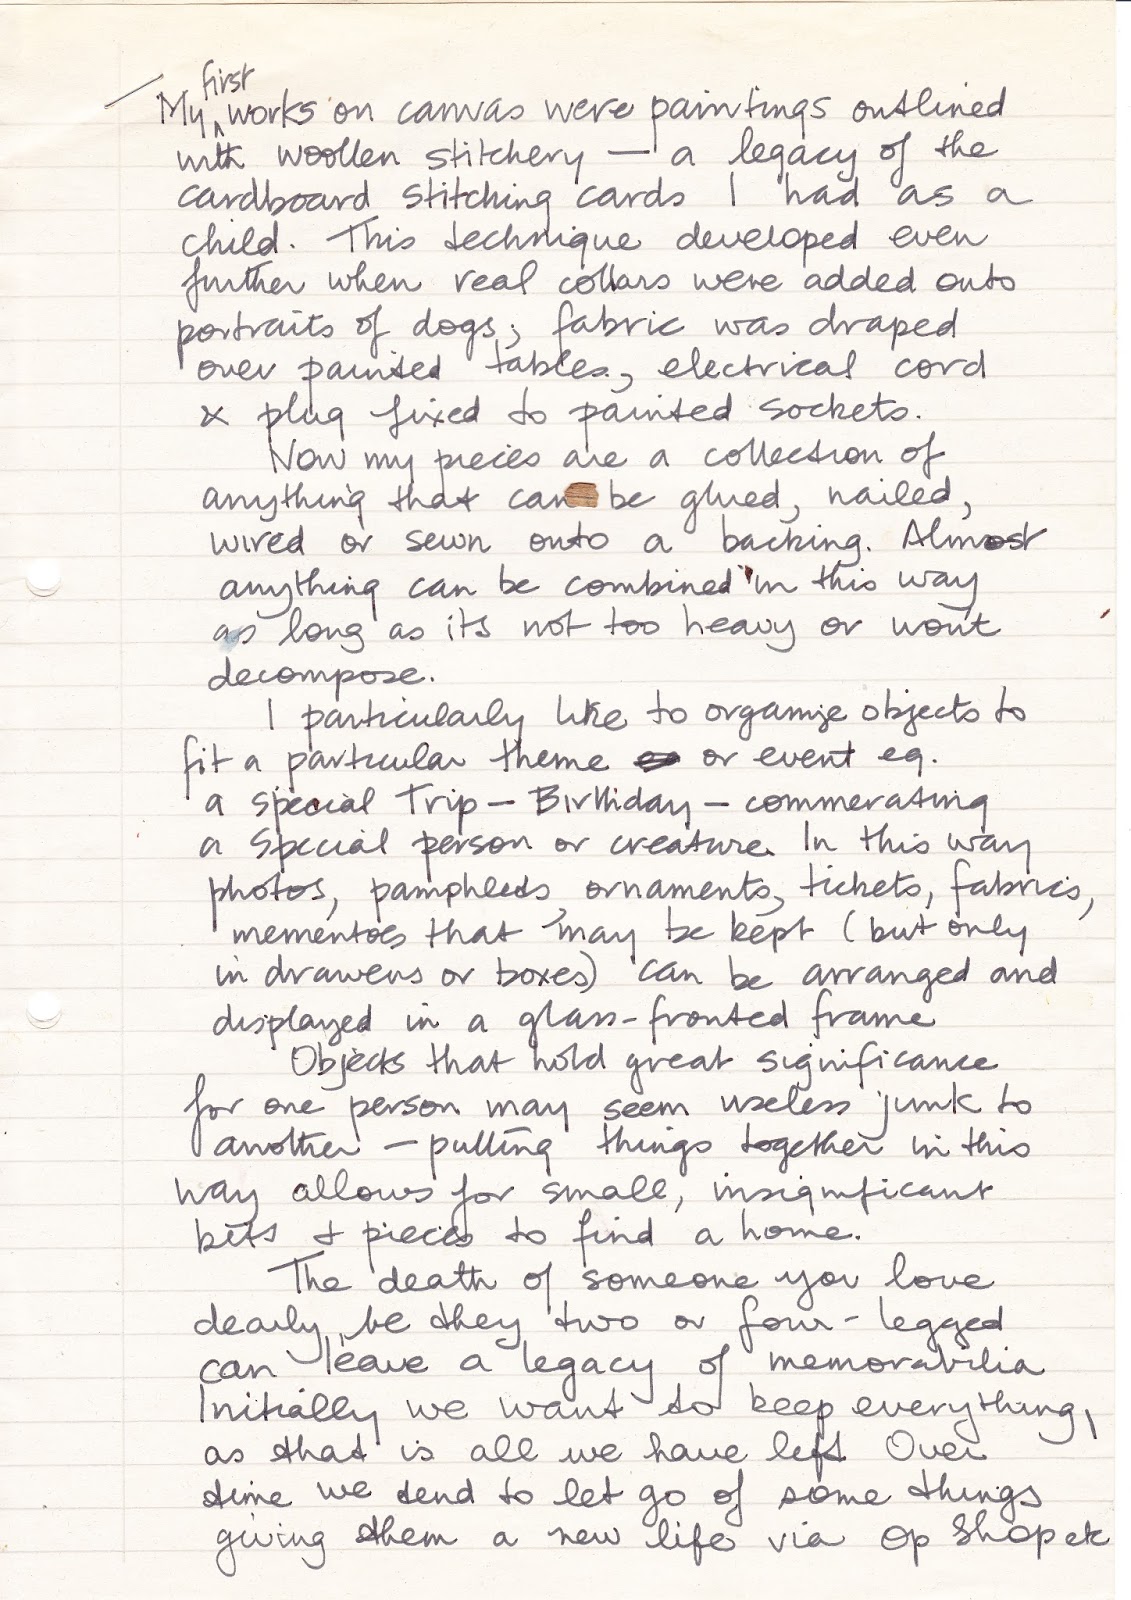 My first works on canvas were paintings outlined
with woollen stitchery — a legacy of the
cardboard stitching cards I had as a
child. This technique developed even
further when real collars were added onto
portraits of dogs; fabric was draped
over painted tables, electrical cord
& plug fixed to painted sockets.
Now my pieces are a collection of
anything that can be glued, nailed,
wired or sewn onto a backing. Almost
anything can be combined in this way
as long as its not too heavy or won't
decompose.
I particularly like to organize objects to
fit a particular theme or event eg.
a special Trip – Birthday – commerating
a special person or creature. In this way
photos, pamphleds, ornaments, tickets, fabrics,
mementoes that may be kept (but only
in drawers or boxes) can be arranged and
displayed in a glass-fronted frame
Objects that hold great significance
for one person may seem useless junk to
another – pulling things together in this
way allows for small, insignificant
bits & pieces to find a home.
The death of someone you love
dearly, be they two or four-legged
can leave a legacy of memorabilia
Initially we want to keep everything,
as that is all we have left Over
time we tend to let go of some things
giving them a new life via Op Shop etc